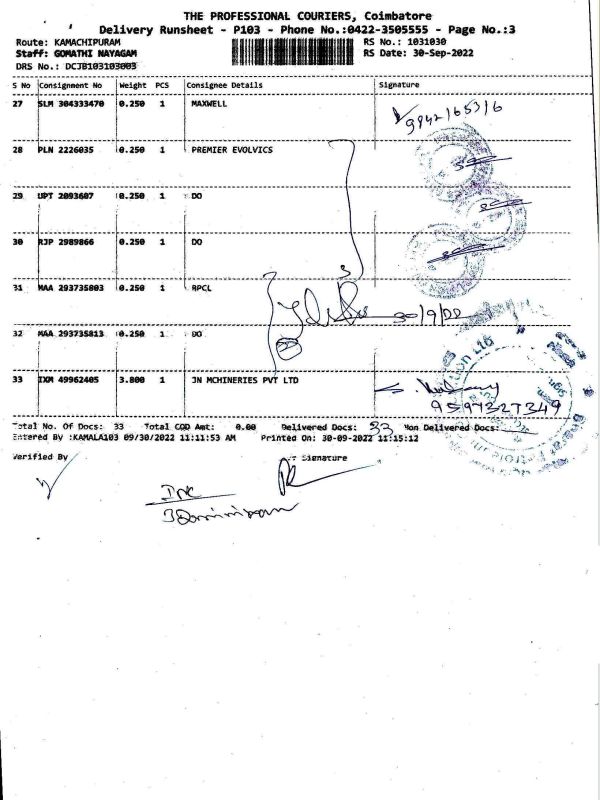 THE PROFESSIONAL COURIERS, Coimbatore
Delivery Runsheet - P103 - Phone No.:0422-3505555 - Page No.:3
Route: KAMACHIPURAM RS No.: 1031030
Staff: GOMATHI NAYAGAM RS Date: 30-Sep-2022
DRS No.: DCJB103103003
S No Consignment No Weight PCS Consignee Details Signature
27 SLM 304333470 0.250 1 MAXWELL
9942165316
28 PLN 2226035 0.250 1 PREMIER EVOLVICS
29 UPT 2093607 0.250 1 DO
30 RJP 2989866 0.250 1 DO
3
31 MAA 293735803 0.250 1 RPCL
30/9/22
32 MAA 293735813 0.250 1 DO
33 IXM 49962405 3.800 1 JN MCHINERIES PVT LTD
9597327349
Total No. Of Docs: 33 Total COD Amt: 0.00 Delivered Docs: 33 Non Delivered Docs:
Entered By :KAMALA103 09/30/2022 11:11:53 AM Printed On: 30-09-2022 11:15:12
Verified By Signature